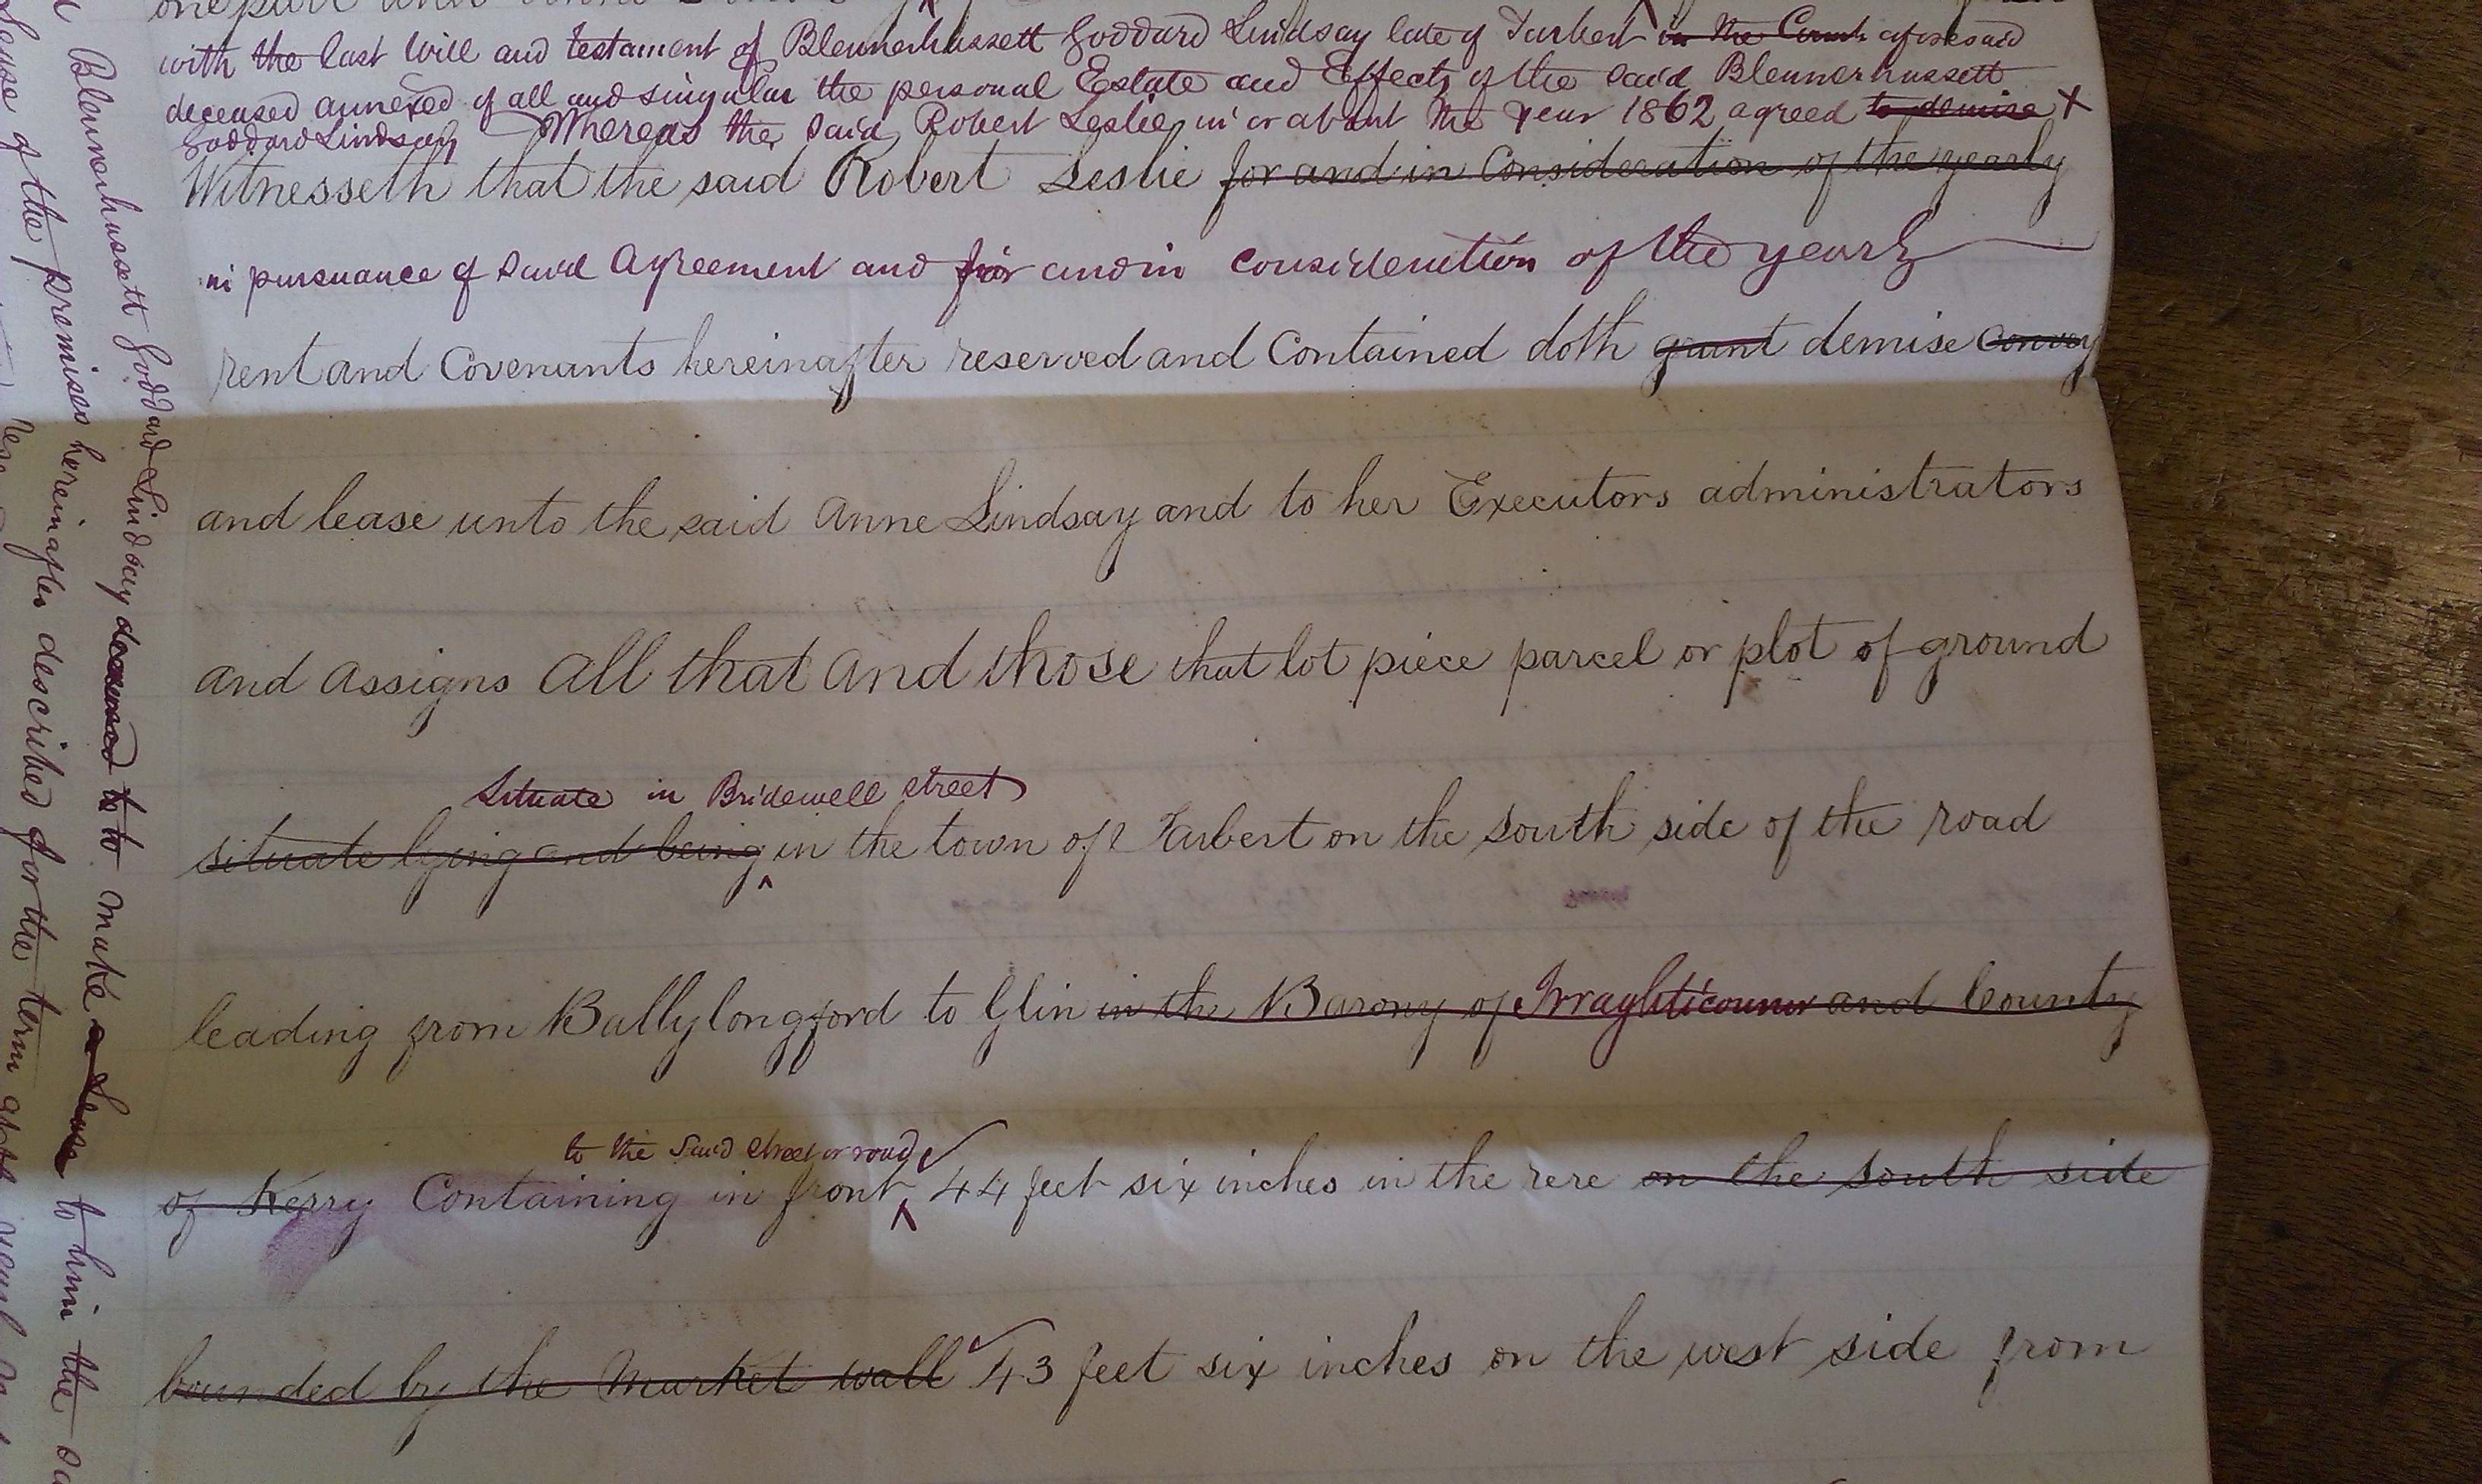 one part and
with the last Will and testament of Blennerhassett Goddard Lindsay late of Tarbert in the County aforesaid
deceased annexed of all and singular the personal Estate and Effects of the said Blennerhassett
Goddard Lindsay Whereas the said Robert Leslie in or about the year 1862 agreed to demise X
Witnesseth that the said Robert Leslie for and in Consideration of the yearly
in pursuance of said Agreement and for and in consideration of the yearly
rent and Covenants hereinafter reserved and Contained doth grant demise convey
and lease unto the said Anne Lindsay and to her Executors administrators
and assigns All that and those that lot piece parcel or plot of ground
Situate in Bridewell street
situate lying and being ^ in the town of Tarbert on the south side of the road
leading from Ballylongford to Glin in the Barony of Irraghticonnor and County
to the said street or road
of Kerry Containing in front ^ 44 feet six inches in the rere on the south side
bounded by the Market wall 43 feet six inches on the west side from
Blennerhassett Goddard Lindsay deceased to to make a Lease to him the
Lease of the premises hereinafter described for the term